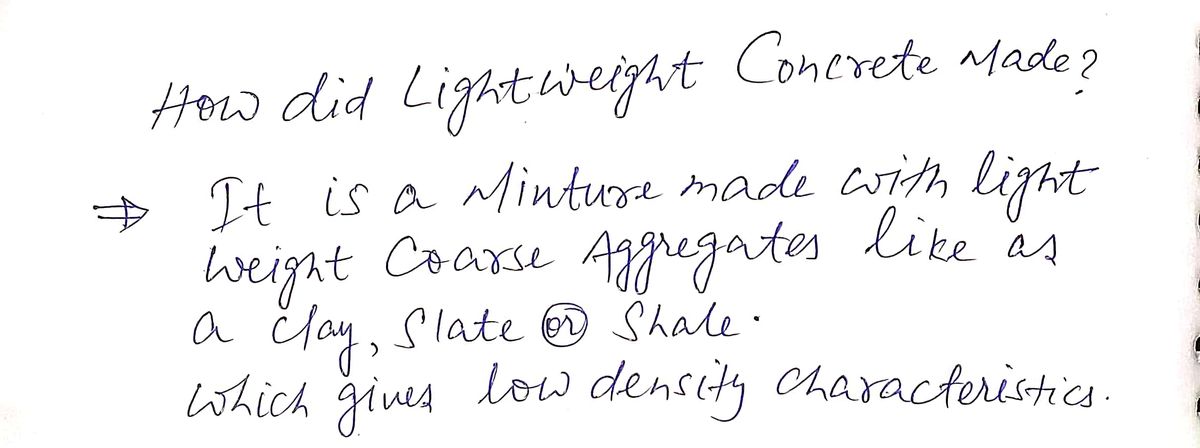 How did Lightweight Concrete Made?
⇒ It is a Minture made with light
weight Coarse Aggregates like as
a Clay, Slate or Shale.
which gives low density characteristics.